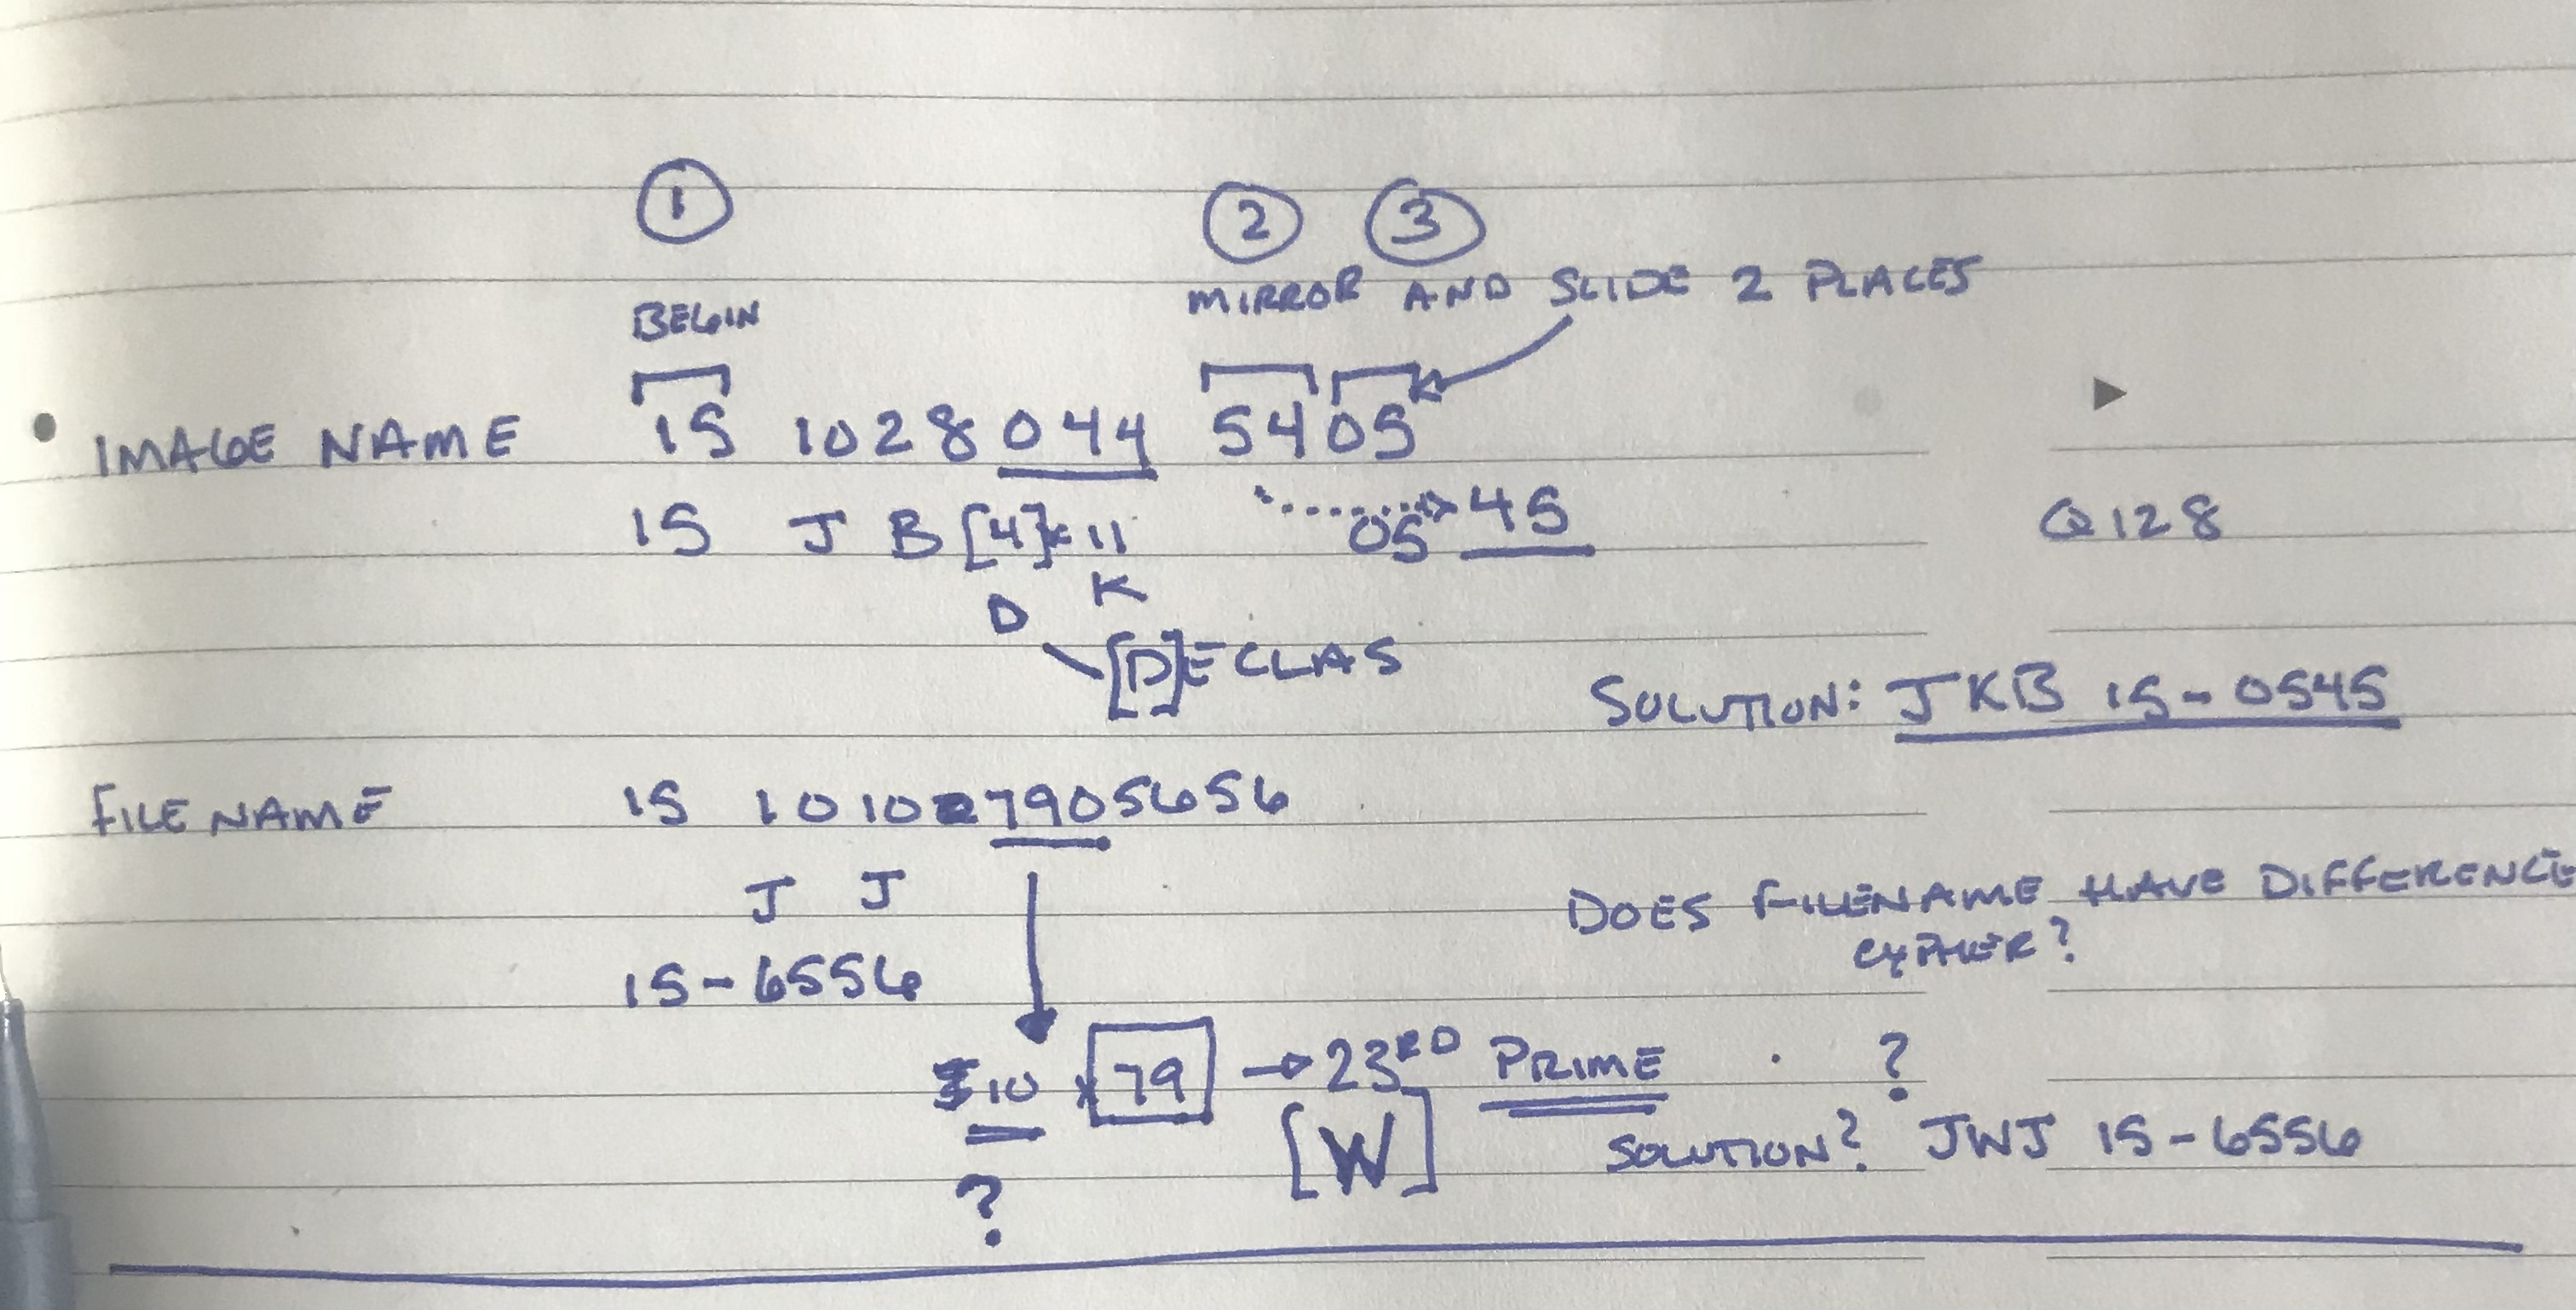 ① ② ③
BEGIN MIRROR AND SLIDE 2 PLACES
• IMAGE NAME 15 1028044 5405
15 J B [4]x 11 05 45 Q128
D K
[D]ECLAS
SOLUTION: JKB 15-0545
FILENAME 15 1010 7905656
J J
DOES FILENAME HAVE DIFFERENCE
CYPHER?
15-6556
10 x 79 → 23RD PRIME ?
[W]
SOLUTION? JWJ 15-6556
?